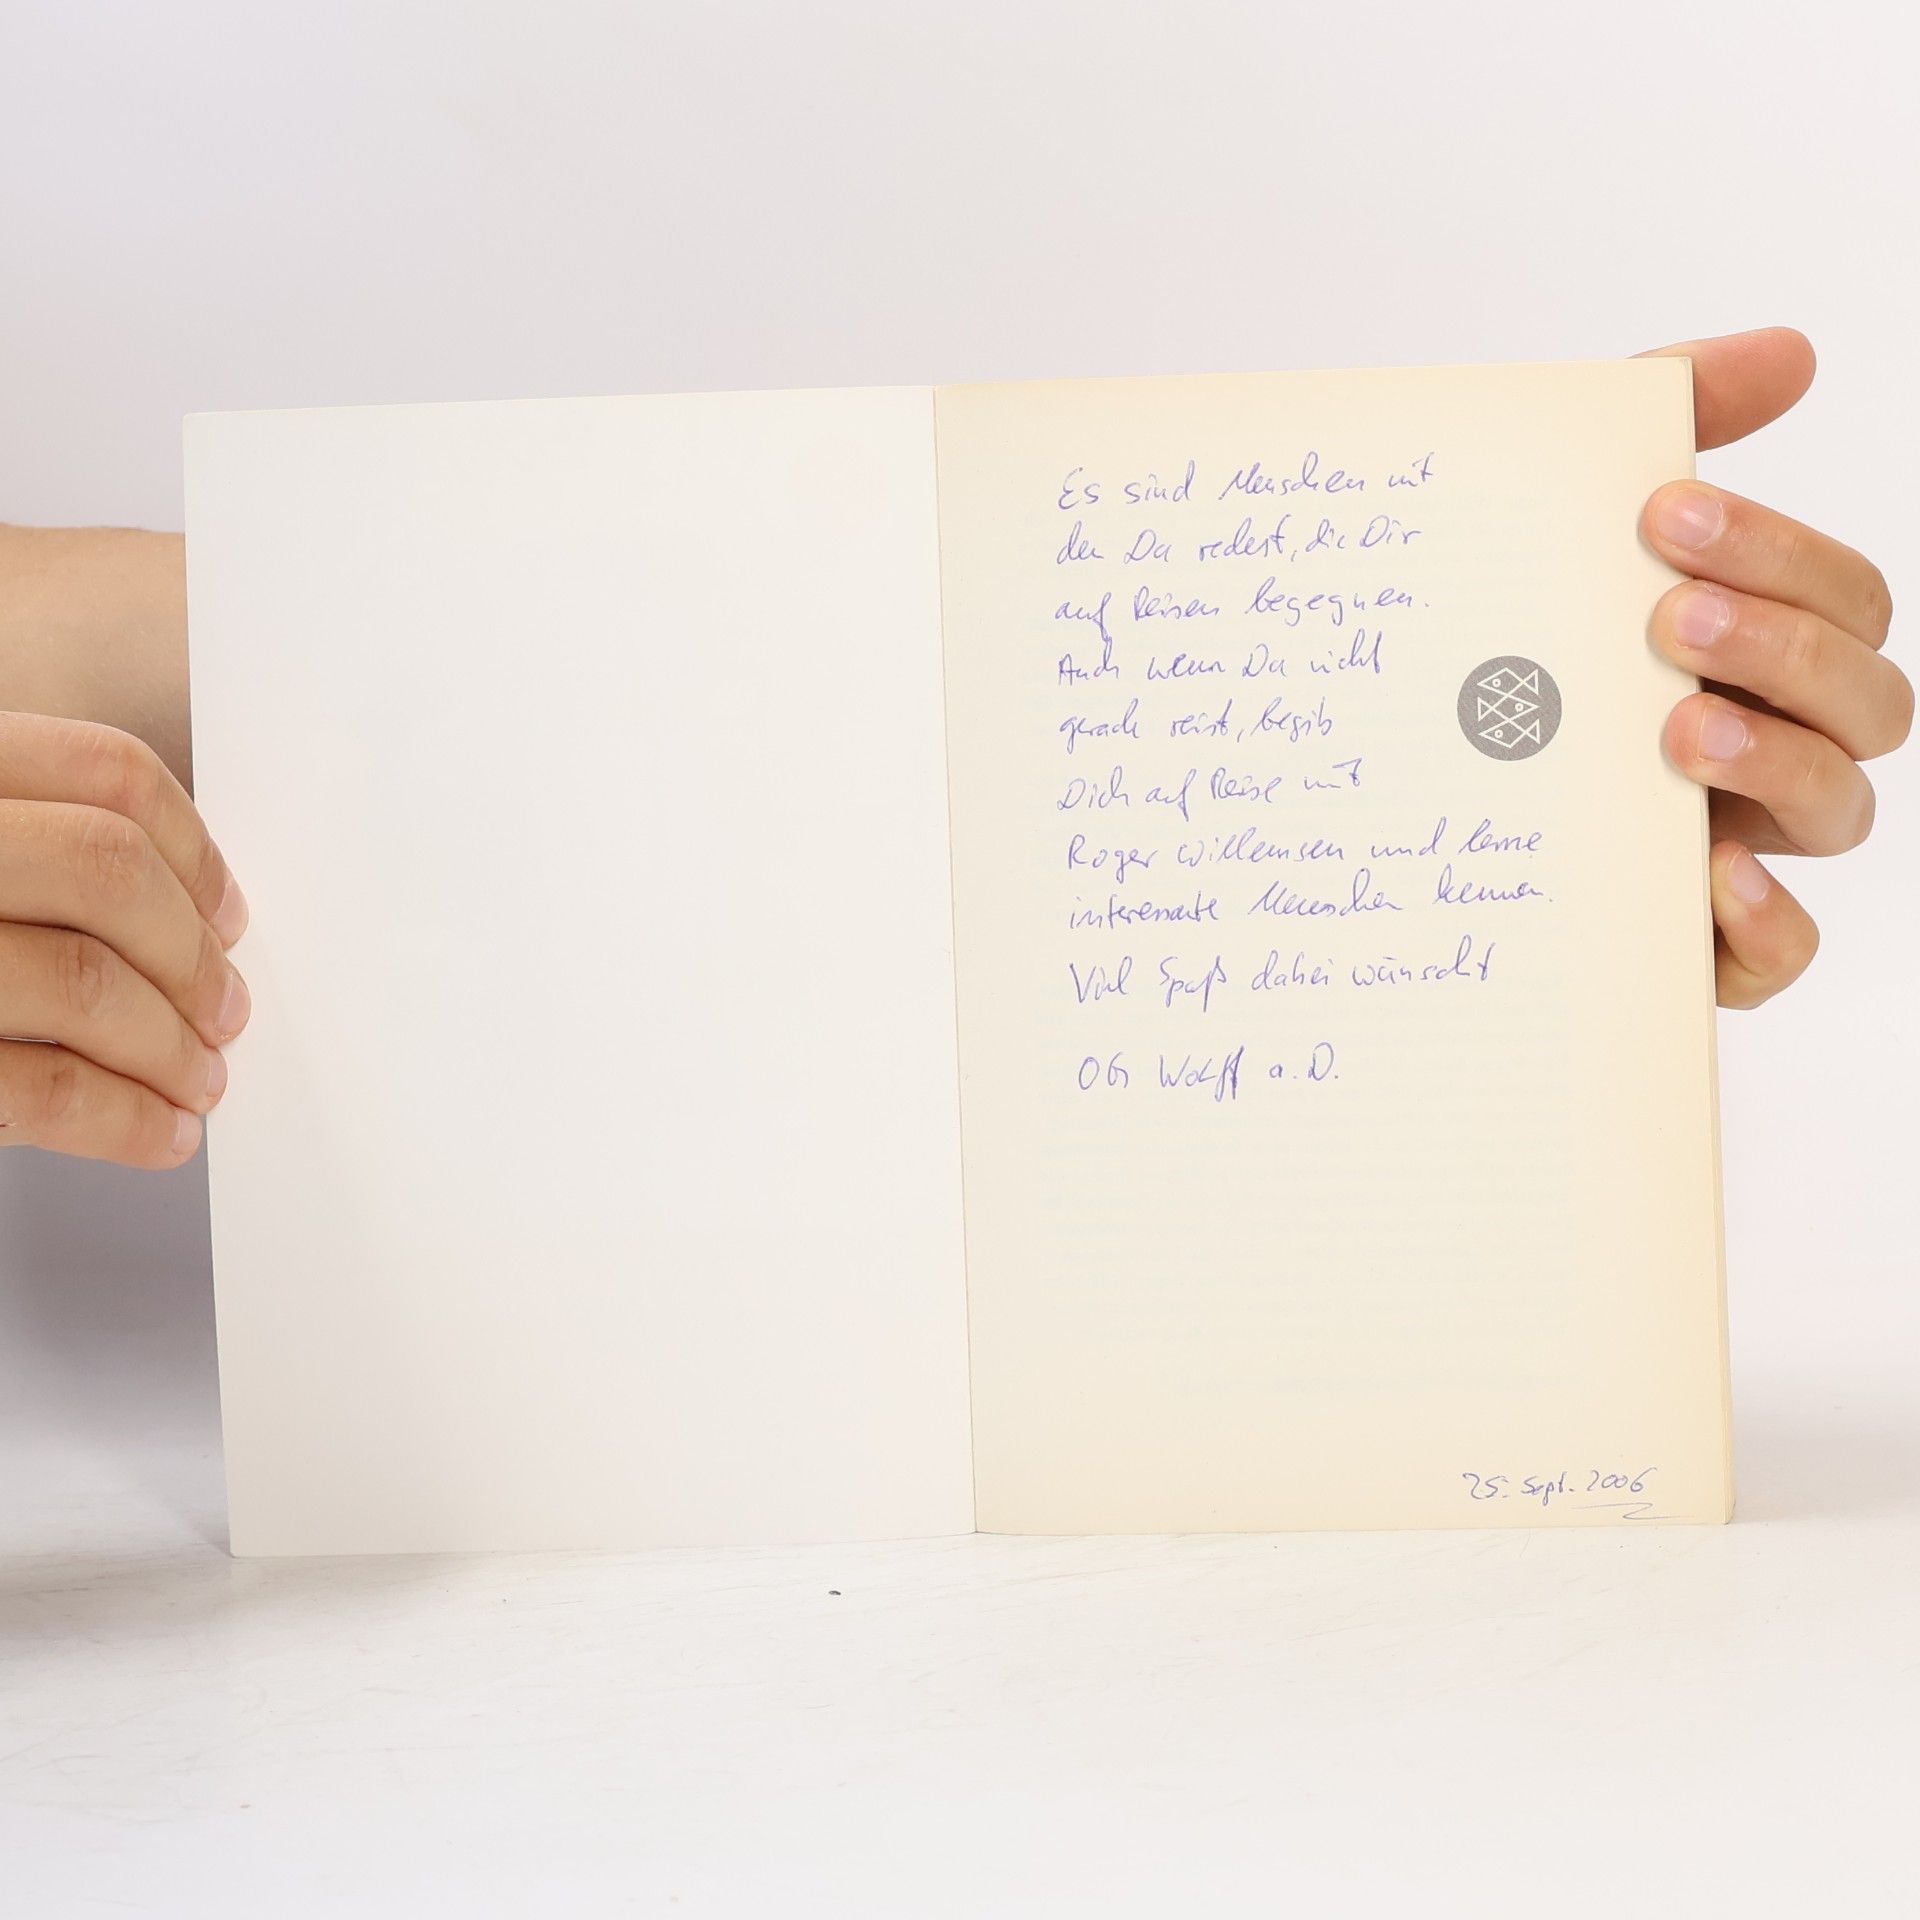 Es sind Menschen mit
den Du redest, die Dir
auf Reisen begegnen.
Auch wenn Du nicht
gerade reist, begib
Dich auf Reise mit
Roger Willemsen und lerne
interessante Menschen kennen.
Viel Spaß dabei wünscht
OG Wolff a.D.
25. Sept. 2006